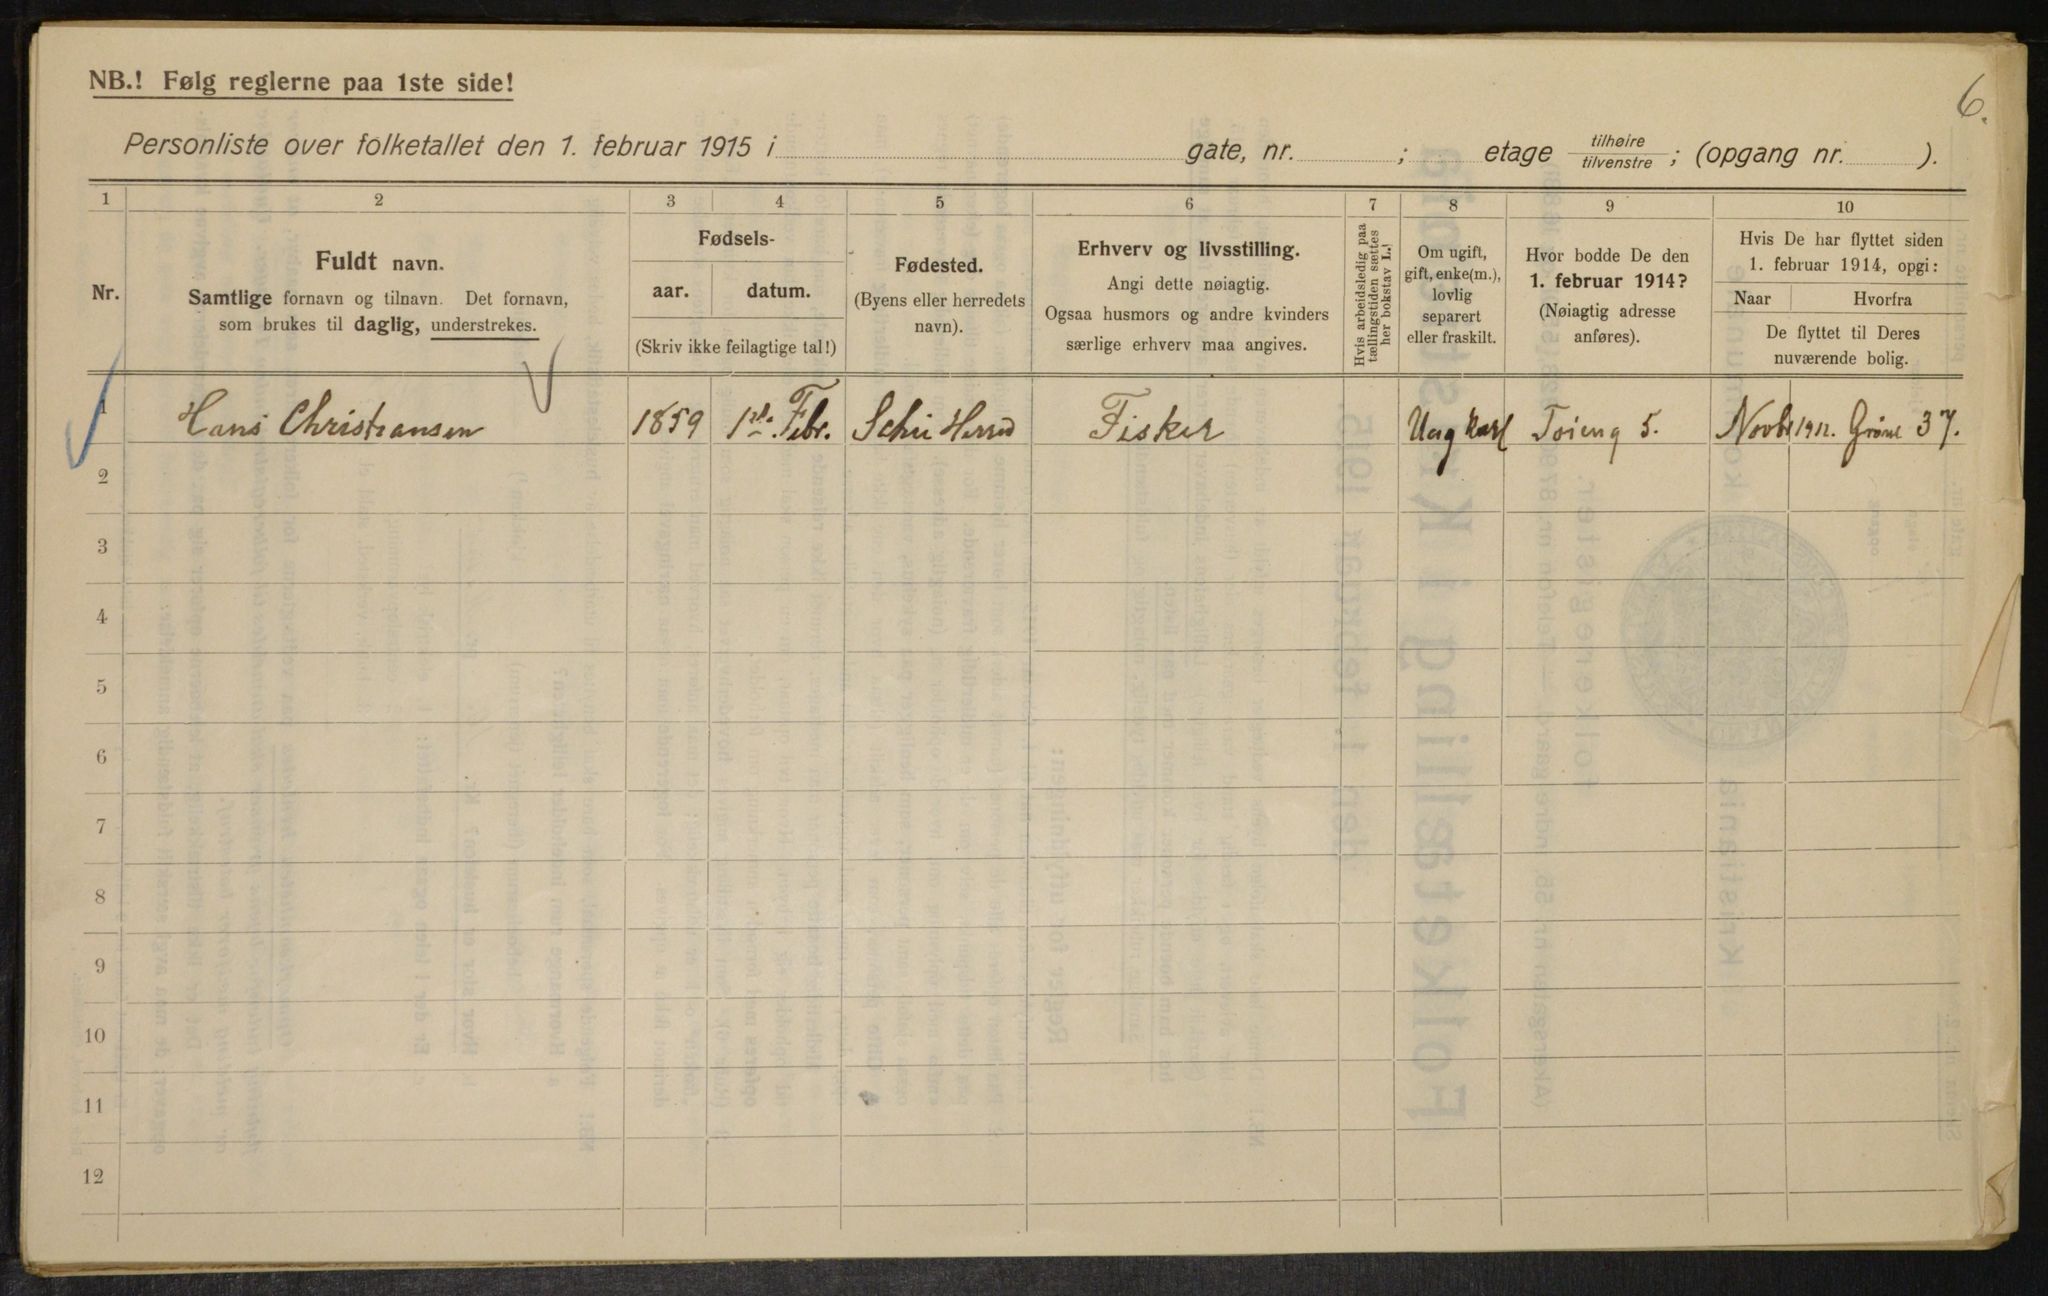 NB.! Følg reglerne paa 1ste side!
6.
Personliste over folketallet den 1. februar 1915 i gate, nr. ; etage tilhøire / tilvenstre ; (opgang nr. ).
1 2 3 4 5 6 7 8 9 10
Nr.
Fuldt navn.
Samtlige fornavn og tilnavn. Det fornavn,
som brukes til daglig, understrekes.
Fødsels-
aar. datum.
(Skriv ikke feilagtige tal!)
Fødested.
(Byens eller herredets
navn).
Erhverv og livsstilling.
Angi dette nøiagtig.
Ogsaa husmors og andre kvinders
særlige erhverv maa angives.
Hvis arbeidsledig paa
tællingstiden sættes
her bokstav L.!
Om ugift,
gift, enke(m.),
lovlig
separert
eller fraskilt.
Hvor bodde De den
1. februar 1914?
(Nøiagtig adresse
anføres).
Hvis De har flyttet siden
1. februar 1914, opgi:
Naar Hvorfra
De flyttet til Deres
nuværende bolig.
1 Hans Christiansen 1859 1 Febr. Fisker Ung Karl Toieng 5. Novb 1912. Grønl 37.
2
3
4
5
6
7
8
9
10
11
12